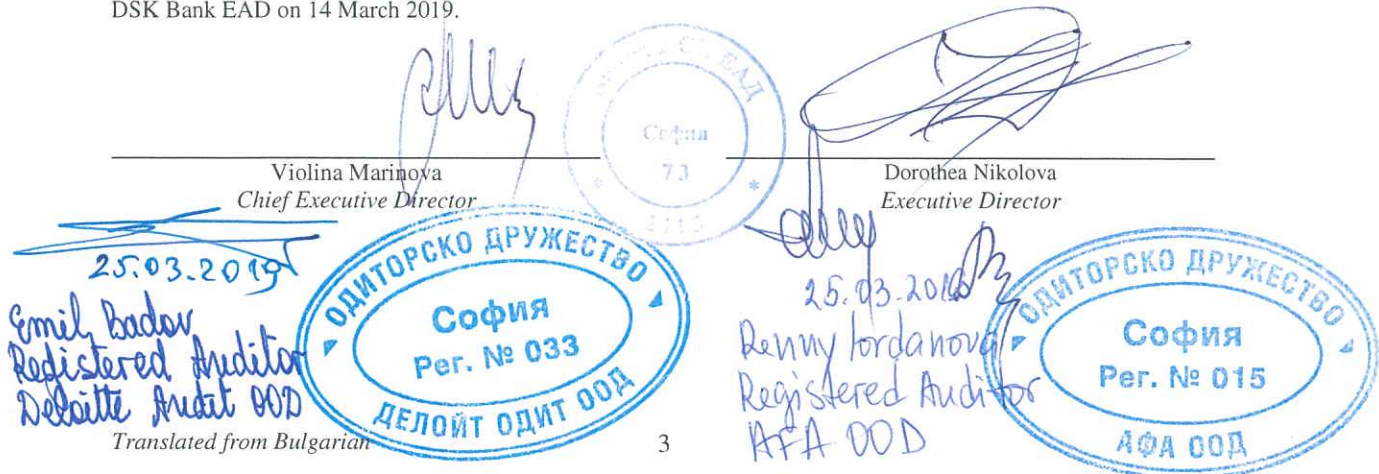 DSK Bank EAD on 14 March 2019.
София
73
Violina Marinova
Chief Executive Director
Dorothea Nikolova
Executive Director
25.03.2019
Emil Badov
Registered Auditor
Deloitte Audit OOD
ОДИТОРСКО ДРУЖЕСТВО
София
Рег. № 033
ДЕЛОЙТ ОДИТ ООД
25.03.2019
Renny Iordanova
Registered Auditor
AFA OOD
ОДИТОРСКО ДРУЖЕСТВО
София
Рег. № 015
АФА ООД
Translated from Bulgarian
3